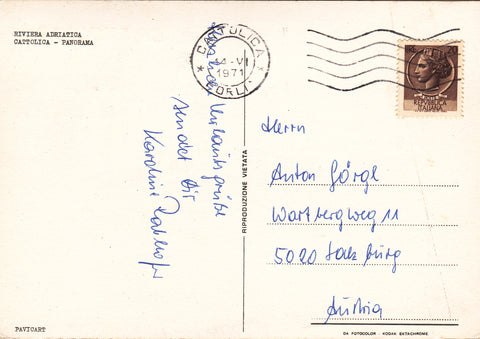 RIVIERA ADRIATICA
CATTOLICA - PANORAMA
CATTOLICA
14-VI
1971
FORLI
REPUBBLICA
ITALIANA
Urlaubsgrüße
sendet Dir
Karoline
Herrn
Anton Görgl
Wartbergweg 11
5020 Salzburg
Austria
RIPRODUZIONE VIETATA
PAVICART
DA FOTOCOLOR - KODAK EKTACHROME